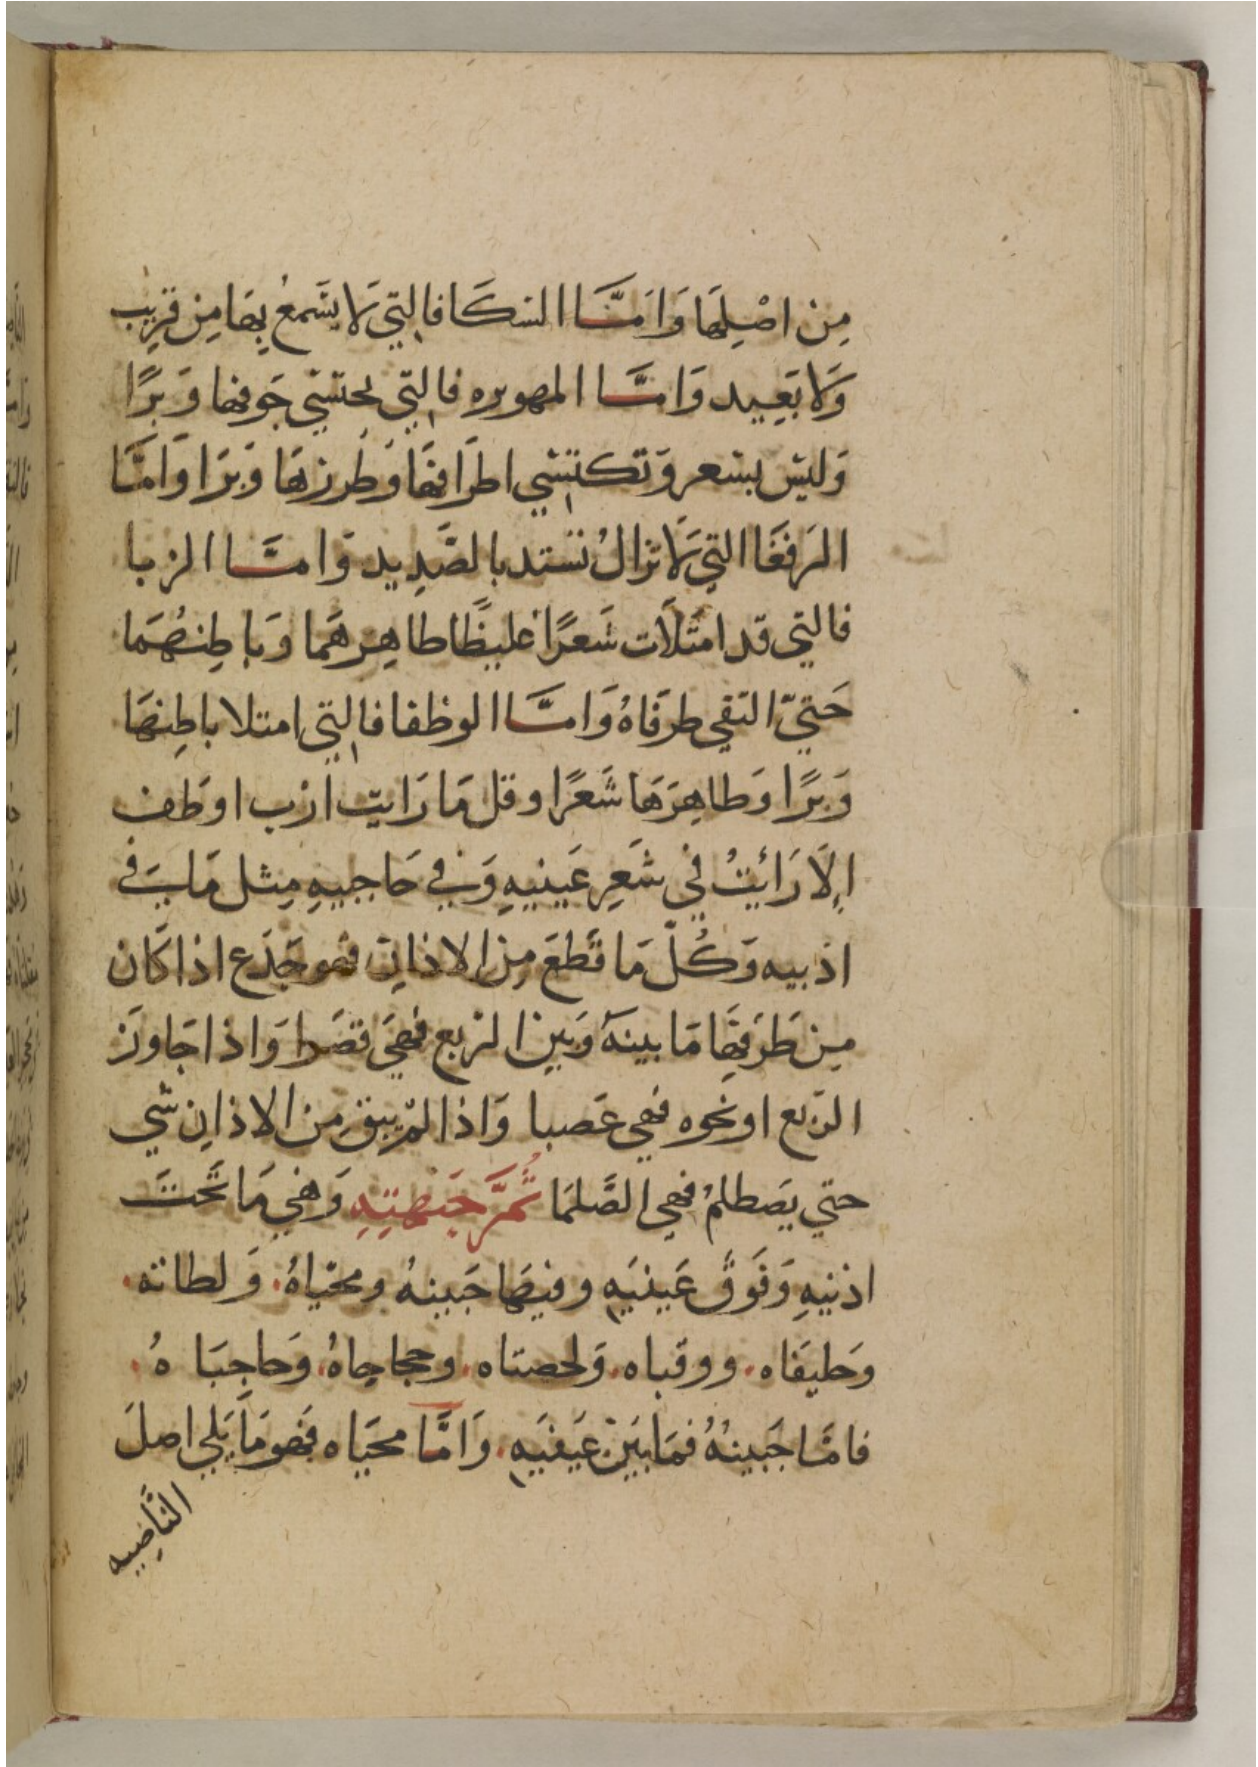 مِن اصْلِهَا وَامَّا السكَا فالتي لا يسَمعُ بِهَا مِن قرِيب
وَلا بَعِيد وَامَّا المهوبره فالتي يحتشي جَوفها وَبرًا
وَليسَ بشعر وَتكتسي اطرَافهَا وَطُرزهَا وَبَرَا وَامَّا
الرَفغَا التي لَا تزالُ تستد بالصَّدِيد وَامَّا الزبا
فالتي قد امتَلَات شَعرًا غليظًا طاهِرهَما وَباطِنهُمَا
حَتيّ التقي طرفَاهُ وَامَّا الوظفا فالتي امتلا باطِنهَا
وَبرًا وَطاهِرَهَا شَعرًا وقل مَا رَايت ازب اوَطف
اِلَا رَائيتُ في شعَرِ عَينيهِ وَفي حَاجبيهِ مِثل مَا في
اذنيه وَكُلّ مَا قَطعَ مِن الاذانِ فهو جَدَع اذا كَان
مِن طَرَفهَِا مَا بينهَ وَبَين الرّبع فهيَ قصَوا وَاذا جَاوَز
الرّبع او نحوه فهي عَصبا وَاذا لمْ يبق مِن الاذانِ شي
حتي يَصطلمُ فهي الصَّلمَا ثُمَّ جَبهتِهِ وَهي مَا تَحتَ
اذنيهِ وَفَوقَ عَينيَهِ وفيهَا جَبينهُ ومحيّاهُ. وَلطاته.
وَحليفَاه. ووقباه. وَلحصتاه. وحجاجاهُ. وَحاجِبَاهُ.
فامَّا جَبينهُ فمَا بَينَ عَينيَهِ. وَامَّا محيَاه فهو مَا يَلي اصلَ
النَّاصِيه